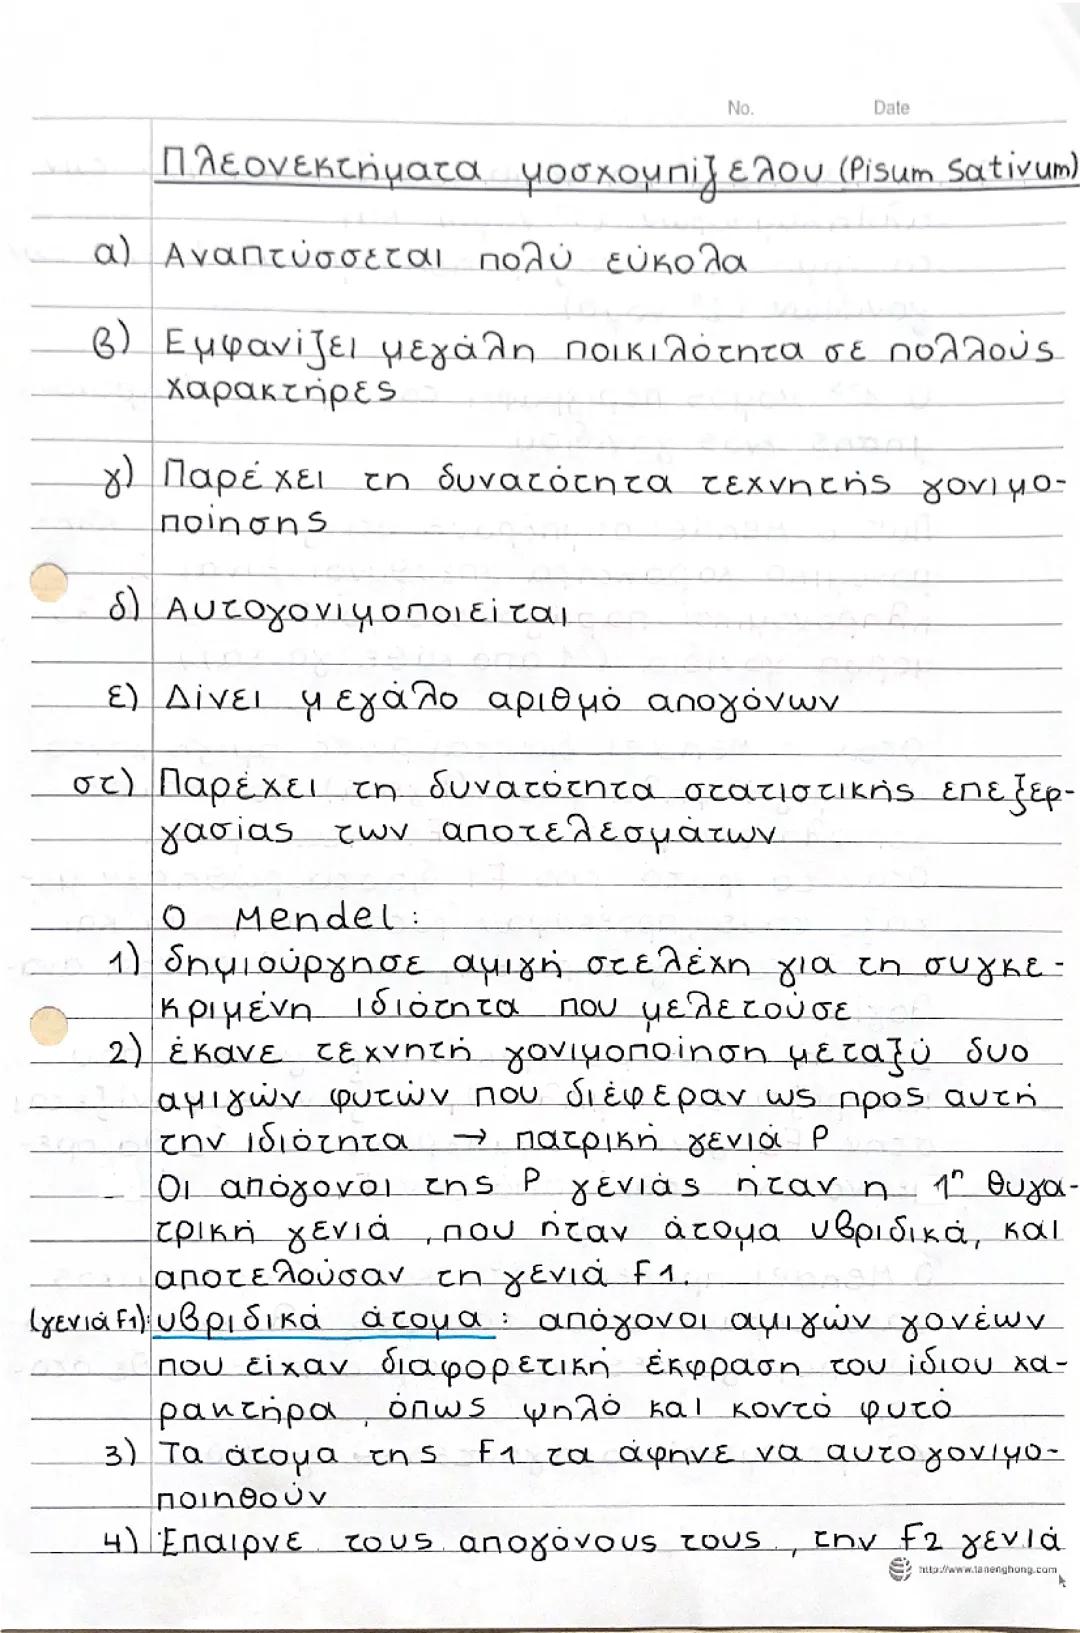 No. Date
Πλεονεκτήματα μοσχομπίζελου (Pisum Sativum)
α) Αναπτύσσεται πολύ εύκολα
β) Εμφανίζει μεγάλη ποικιλότητα σε πολλούς
χαρακτήρες
γ) Παρέχει τη δυνατότητα τεχνητής γονιμο-
ποίησης
δ) Αυτογονιμοποιείται
ε) Δίνει μεγάλο αριθμό απογόνων
στ) Παρέχει τη δυνατότητα στατιστικής επεξερ-
γασίας των αποτελεσμάτων
Ο Mendel:
1) δημιούργησε αμιγή στελέχη για τη συγκε-
κριμένη ιδιότητα που μελετούσε
2) έκανε τεχνητή γονιμοποίηση μεταξύ δυο
αμιγών φυτών που διέφεραν ως προς αυτή
την ιδιότητα → πατρική γενιά P
- Οι απόγονοι της P γενιάς ήταν η 1η θυγα-
τρική γενιά, που ήταν άτομα υβριδικά, και
αποτελούσαν τη γενιά F1.
(γενιά F1): υβριδικά άτομα: απόγονοι αμιγών γονέων
που είχαν διαφορετική έκφραση του ίδιου χα-
ρακτήρα, όπως ψηλό και κοντό φυτό
3) Τα άτομα της F1 τα άφηνε να αυτογονιμο-
ποιηθούν
4) Έπαιρνε τους απογόνους τους, την F2 γενιά
http://www.tanenghong.com